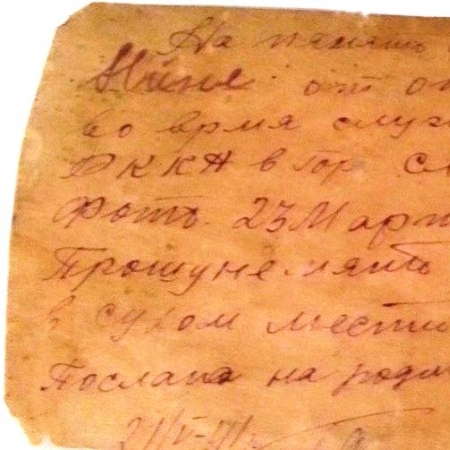 На память
Нине от
во врмя служ
РККА в гор. С
Фото. 23 Март
Прошу не мять
в сухом месте
Послано на роди